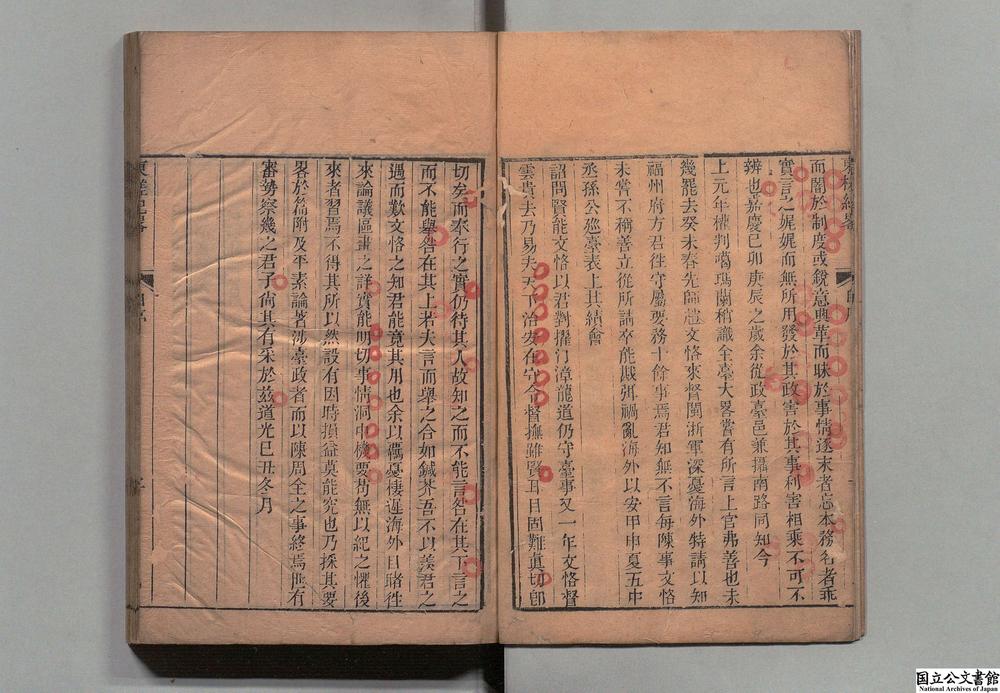 而闇於制度或銳意興革而昧於事情逐末者忘本務名者乖
實言之娓娓而無所用發於其政害於其事利害相乘不可不
辨也嘉慶己卯庚辰之歲余從政臺邑兼攝南路同知今
上元年權判噶瑪蘭稍識全臺大畧嘗有所言上官弗善也未
幾罷去癸未春先師趙文恪來督閩浙軍深憂海外特請以知
福州府方君徃守屬要務十餘事焉君知無不言每陳事文恪
未嘗不稱善立從所請卒能戢弭禍亂海外以安甲申夏五中
丞孫公廵臺表上其績會
詔問賢能文恪以君對擢汀漳龍道仍守臺事又一年文恪督
雲貴去乃易夫天下治安在守令督撫雖賢耳目固難眞切卽
切矣而奉行之實仍待其人故知之而不能言咎在其下言之
而不能舉咎在其上若夫言而舉之合如鍼芥吾不以羨君之
遇而歎文恪之知君能竟其用也余以羈憂棲遲海外目睹徃
來論議區畫之詳實能明切事情洞中機要苟無以紀之懼後
來者習焉不得其所以然設有因時損益莫能究也乃採其要
畧於篇附及平素論著涉臺政者而以陳周全之事終焉世有
審勢察幾之君子尙其有采於兹道光己丑冬月
東槎紀畧
自序
国立公文書館
National Archives of Japan